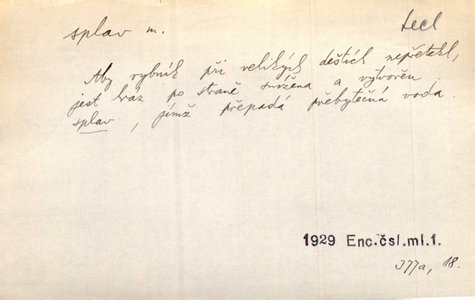 splav m.
tecl
Aby rybník při velikých deštích nepřetekl,
jest hráz po straně snížena a vytvořen
splav, jímž přepadá přebytečná voda.
1929 Enc.čsl.ml.1.
377a, 18.